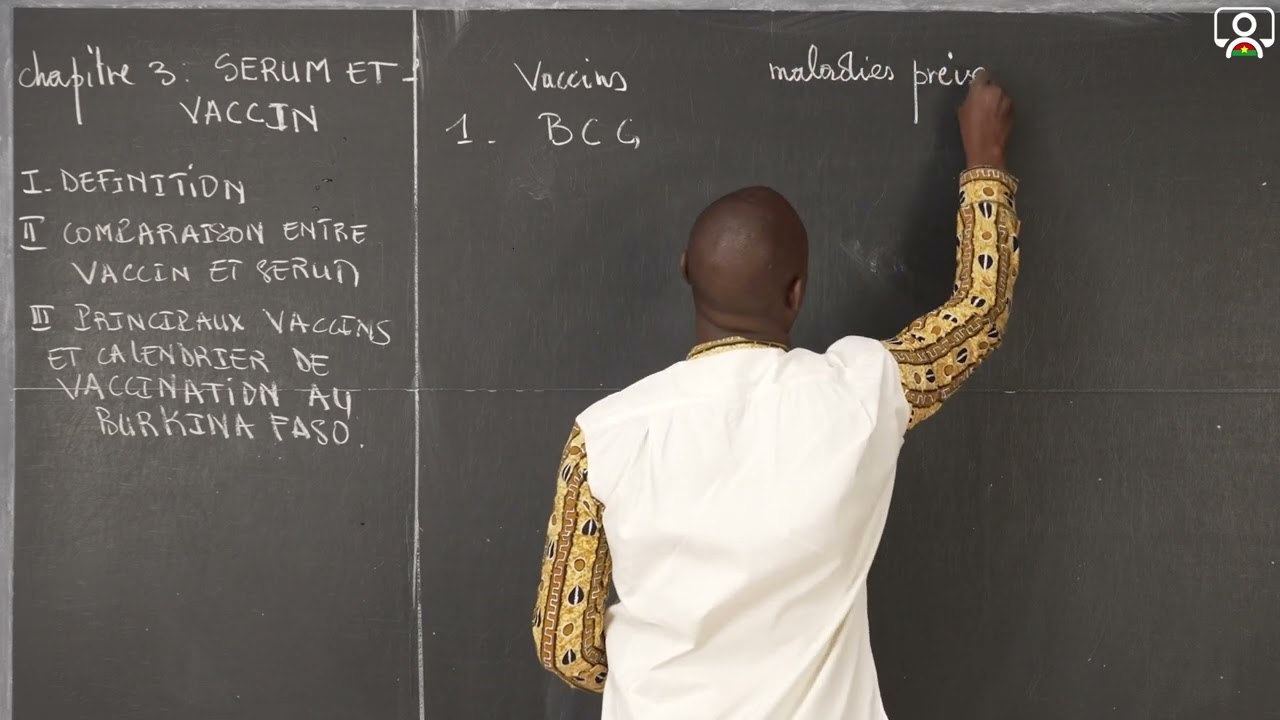 chapitre 3: SERUM ET
VACCIN
I. DEFINITION
II COMPARAISON ENTRE
VACCIN ET SERUM
III PRINCIPAUX VACCINS
ET CALENDRIER DE
VACCINATION AU
BURKINA FASO.
Vaccins maladies préve
1. BCG